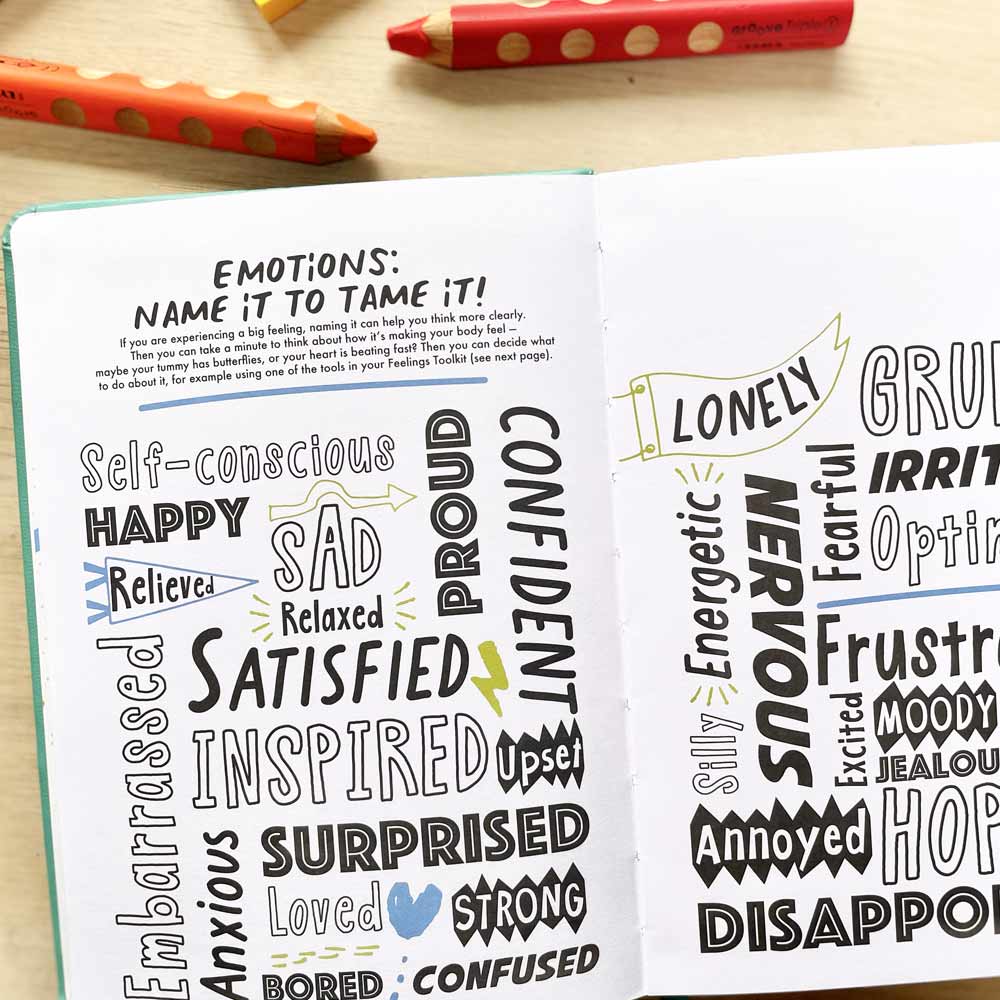 groove Triple
EMOTIONS:
NAME IT TO TAME IT!
If you are experiencing a big feeling, naming it can help you think more clearly.
Then you can take a minute to think about how it's making your body feel –
maybe your tummy has butterflies, or your heart is beating fast? Then you can decide what
to do about it, for example using one of the tools in your Feelings Toolkit (see next page).
Self-conscious
HAPPY
SAD
PROUD
CONFIDENT
Relieved
Relaxed
SATISFIED
Embarrassed
INSPIRED
Upset
Anxious
SURPRISED
Loved
STRONG
BORED
CONFUSED
LONELY
GRU
Energetic
NERVOUS
Fearful
IRRIT
Optim
Frustr
Silly
Excited
MOODY
JEALOU
Annoyed
HOP
DISAPPO